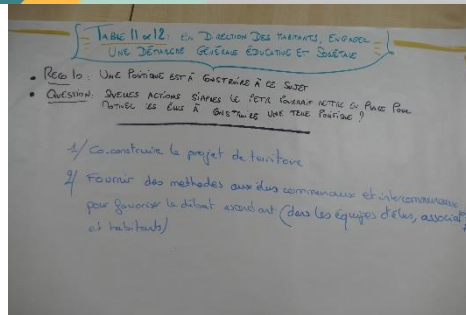 TABLE 11 OU 12 : EN DIRECTION DES HABITANTS, ENGAGER
UNE DÉMARCHE GÉNÉRALE ÉDUCATIVE ET SOCIÉTALE
• RECO 10 : UNE POLITIQUE EST À CONSTRUIRE À CE SUJET
• QUESTION : QUELLES ACTIONS SIMPLES LE PETR POURRAIT METTRE EN PLACE POUR
MOTIVER LES ÉLUS À CONSTRUIRE UNE TELLE POLITIQUE ?
1/ Co-construire le projet de territoire
2/ Fournir des méthodes aux élus communaux et intercommunaux
pour favoriser le débat ascendant (dans les équipes d'élus, associat°,
et habitants)